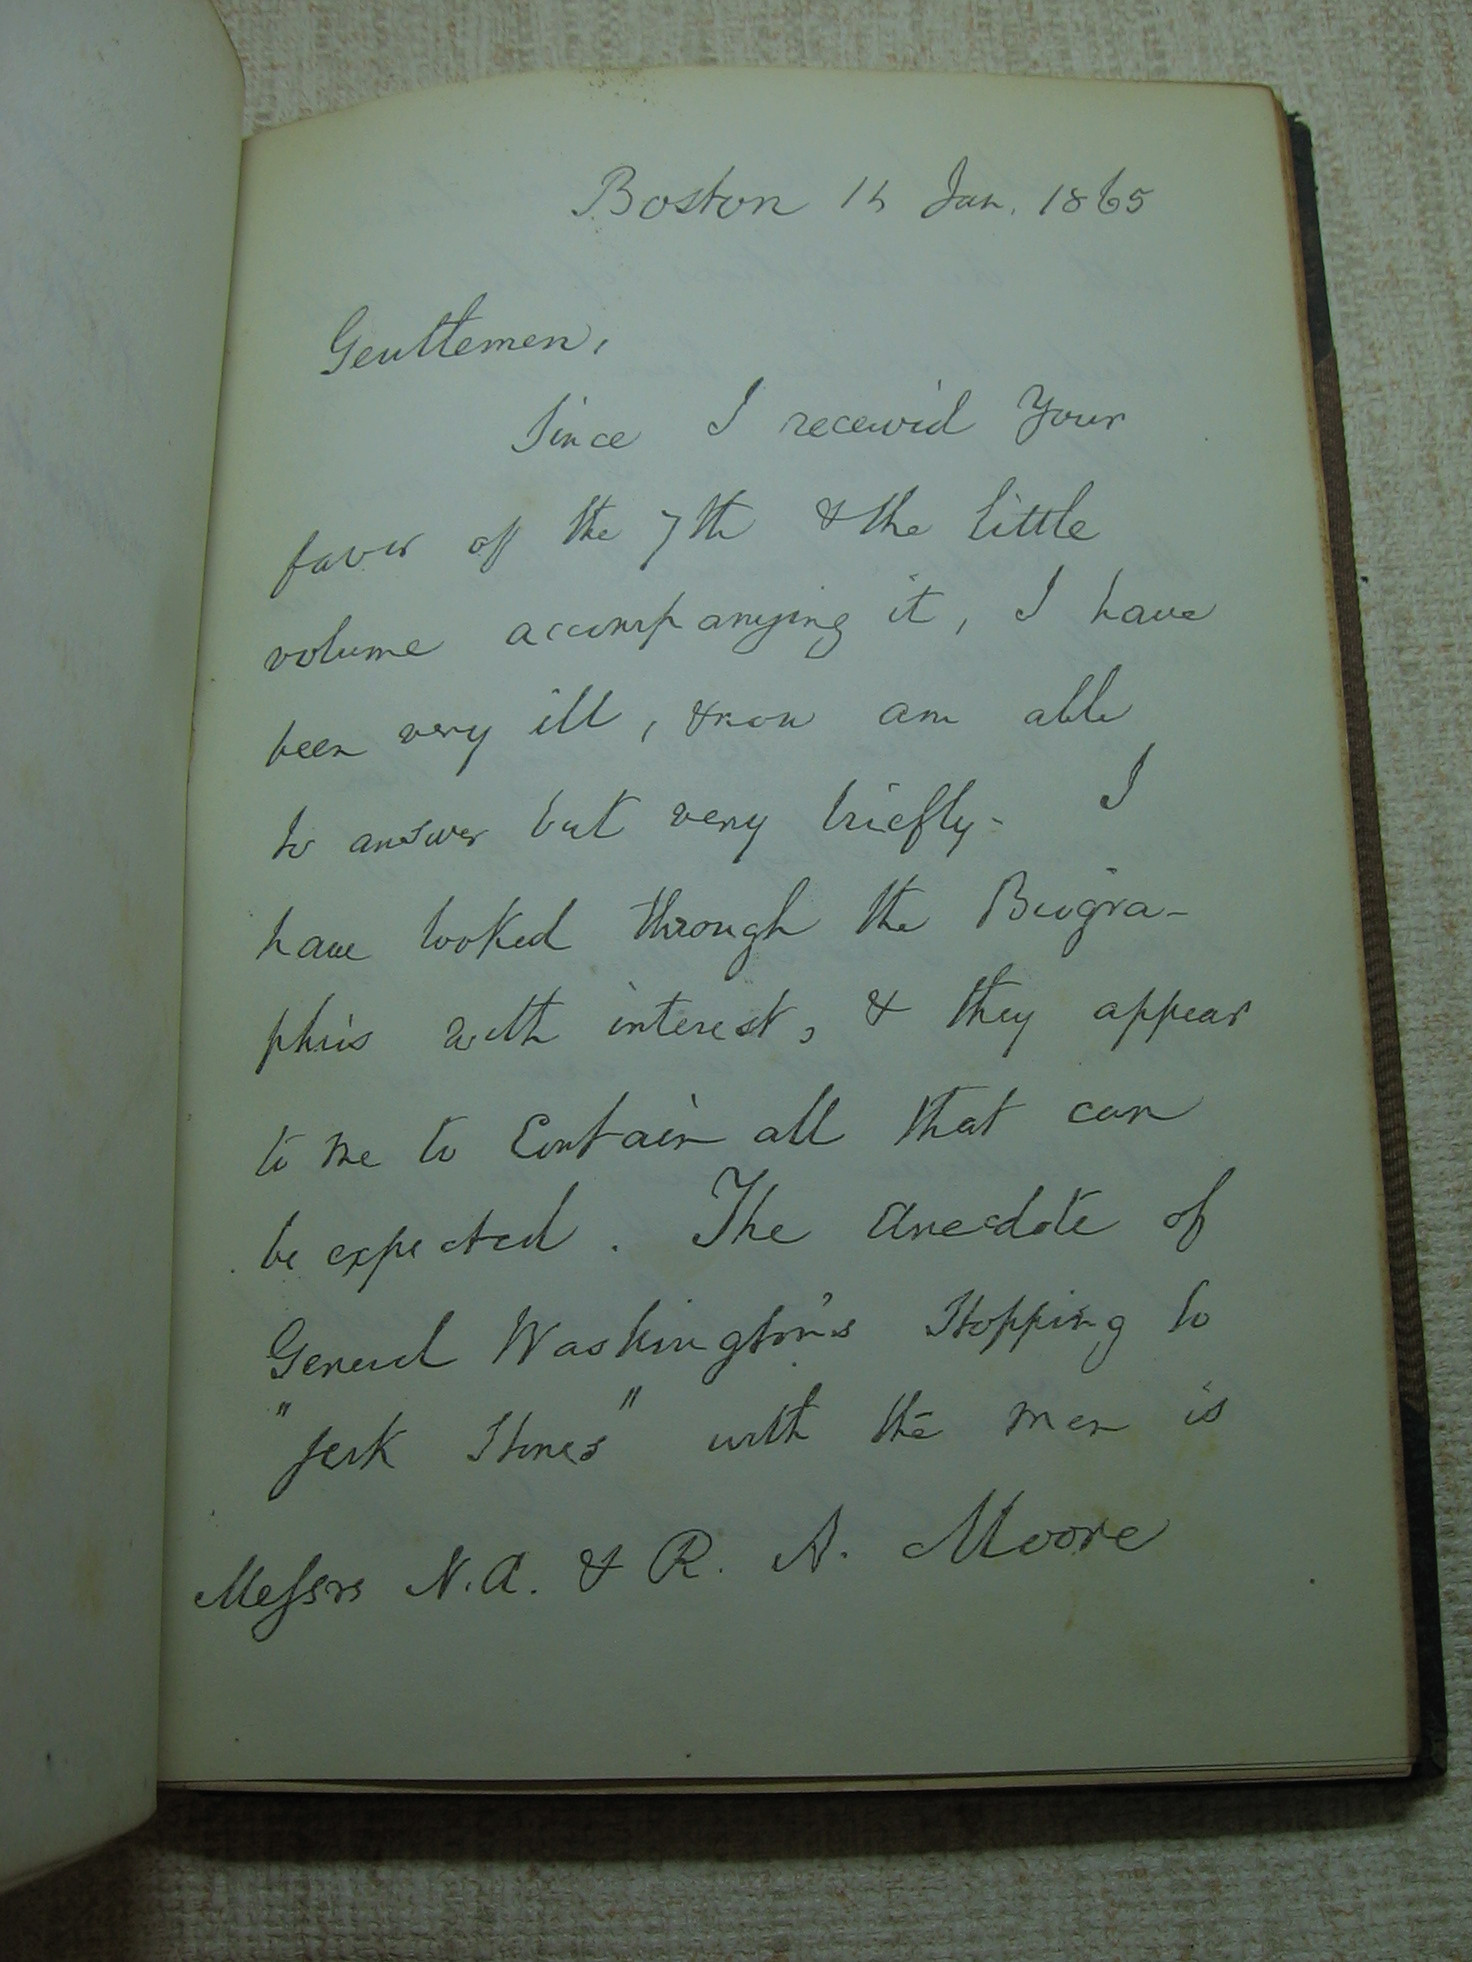 Boston 14 Jan. 1865
Gentlemen,
Since I receiv'd Your
favor of the 7th & the little
volume accompanying it, I have
been very ill, & now am able
to answer but very briefly- I
have looked through the Biogra-
phies with interest, & they appear
to me to Contain all that can
be expected. The Anecdote of
General Washington's Stopping to
"Jerk Stones" with the men is
Messrs N. A. & R. A. Moore